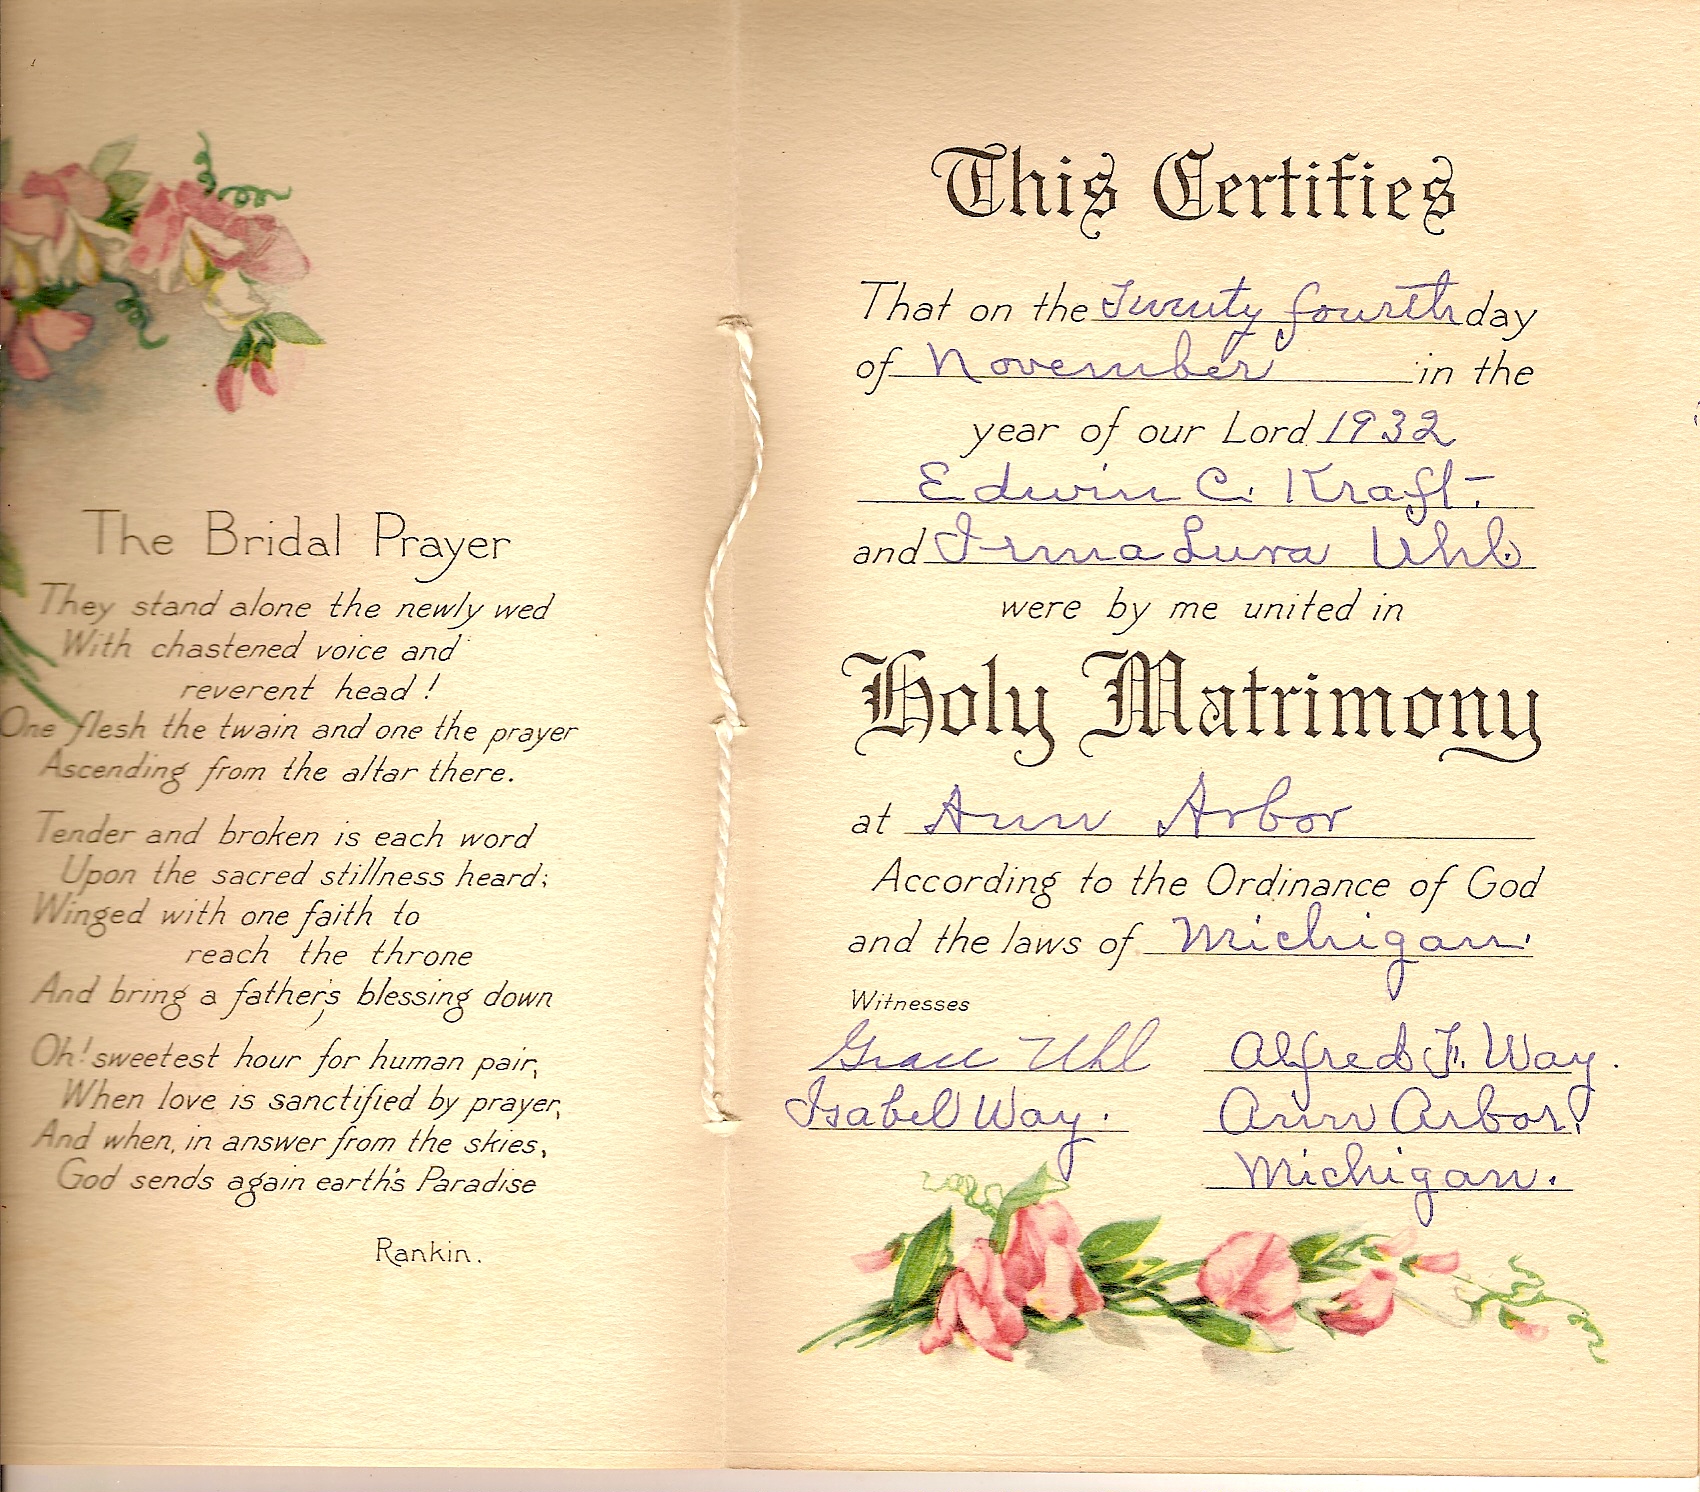 The Bridal Prayer
They stand alone the newly wed
With chastened voice and
reverent head!
One flesh the twain and one the prayer
Ascending from the altar there.
Tender and broken is each word
Upon the sacred stillness heard;
Winged with one faith to
reach the throne
And bring a father's blessing down
Oh! sweetest hour for human pair,
When love is sanctified by prayer,
And when, in answer from the skies,
God sends again earth's Paradise
Rankin.
This Certifies
That on the Twenty fourth day
of November in the
year of our Lord 1932
Edwin C. Kraft
and Irma Lura Uhl
were by me united in
Holy Matrimony
at Ann Arbor
According to the Ordinance of God
and the laws of Michigan.
Witnesses
Grace Uhl
Isabel Way.
Alfred F. Way.
Ann Arbor.
Michigan.